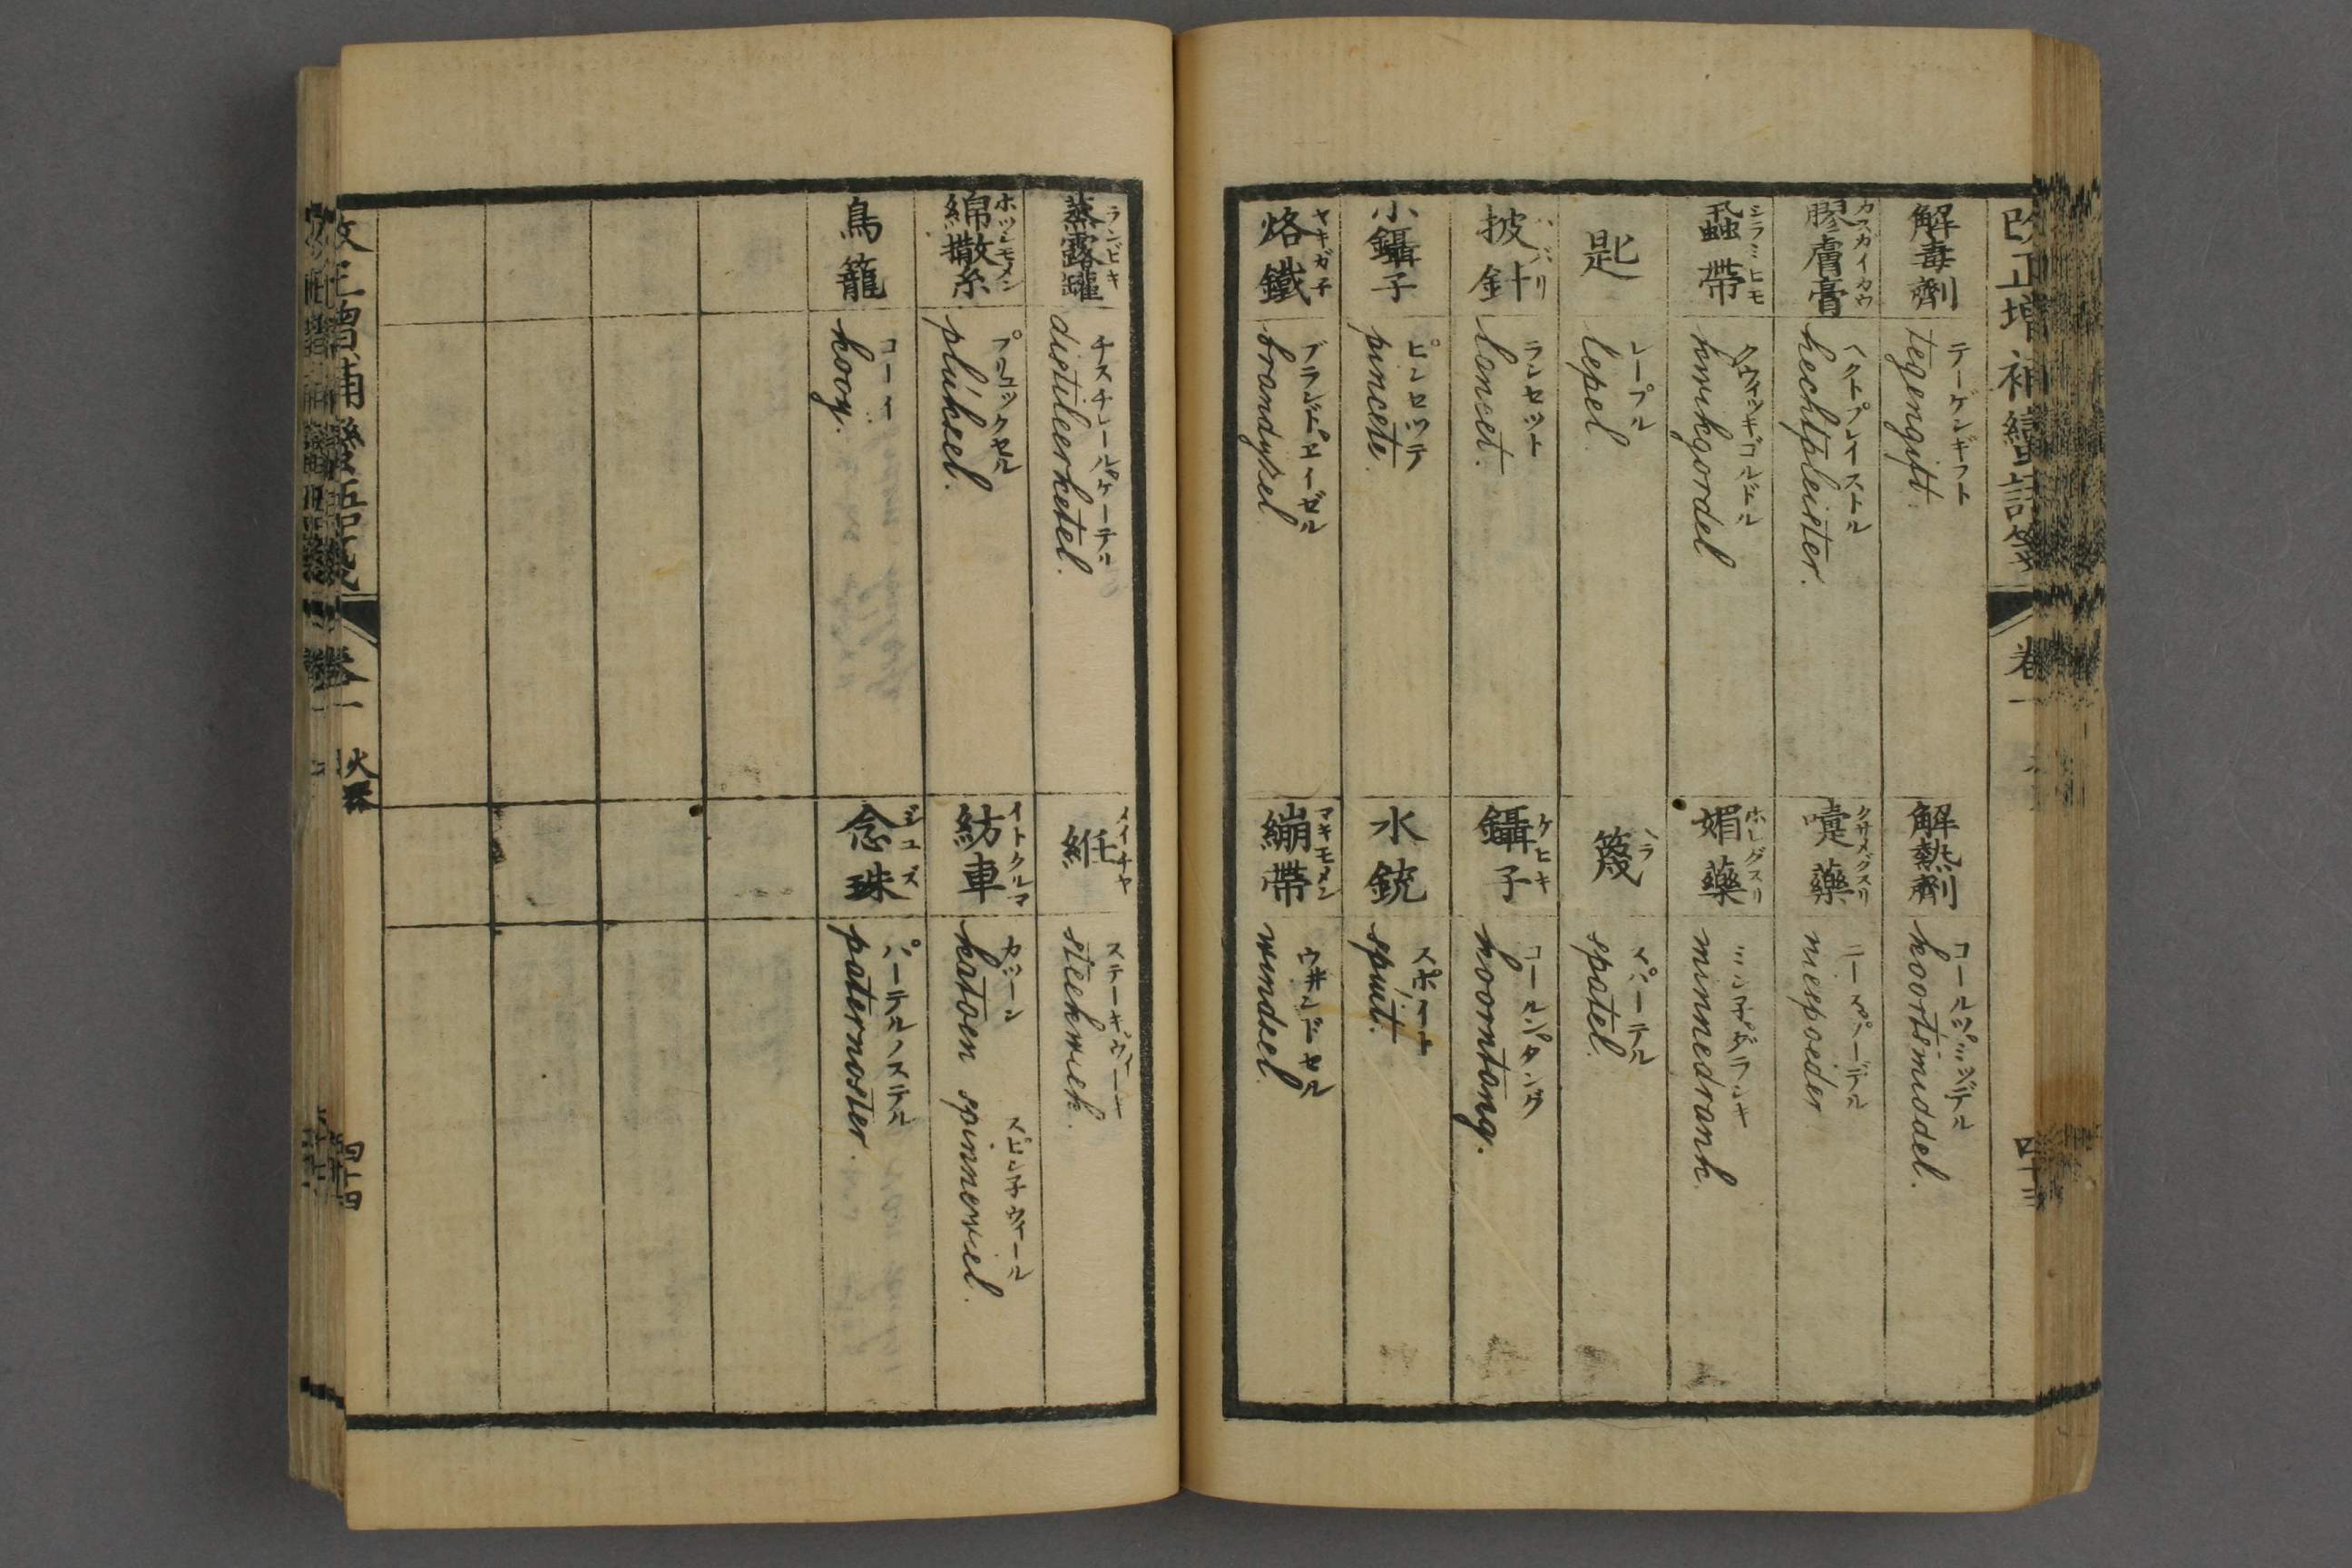 改正増補蠻語箋 卷一 四十三
解毒劑 テーゲンギフト tegengift.
解熱劑 コールツミッデル koortsmiddel.
膠膚膏 カスガイカウ ヘクトプレイストル hechtpleister.
嚏藥 クサメグスリ ニースプーデル niespoeder
蝨帶 シラミヒモ クウィッキゴルドル kwikgordel
媚藥 ホレグスリ ミン子ダランキ minnedrank.
匙 レープル lepel.
篾 ヘラ スパーテル spatel.
披針 ハバリ ランセット lancet.
鑷子 ケヒキ コールンタング koorntang.
小鑷子 ピンセッテ pincete.
水銃 スポイト spuit.
烙鐵 ヤキガ子 ブランドエーゼル brandyzel
繃帶 マキモメン ウ井ンドセル windsel.
蒸露罐 ランビキ チスチレールケーテル distileerketel.
絍 メイチヤ ステーキウィーキ steekwiek.
綿撒糸 ホツシモメン プリュックセル pluksel.
紡車 イトクルマ カツーン スピン子ウィール katoen spinnewiel.
鳥籠 コーイ kooy.
念珠 ジュズ パーテルノステル paternoster.
改正増補蠻語箋 卷一 火器 四十四